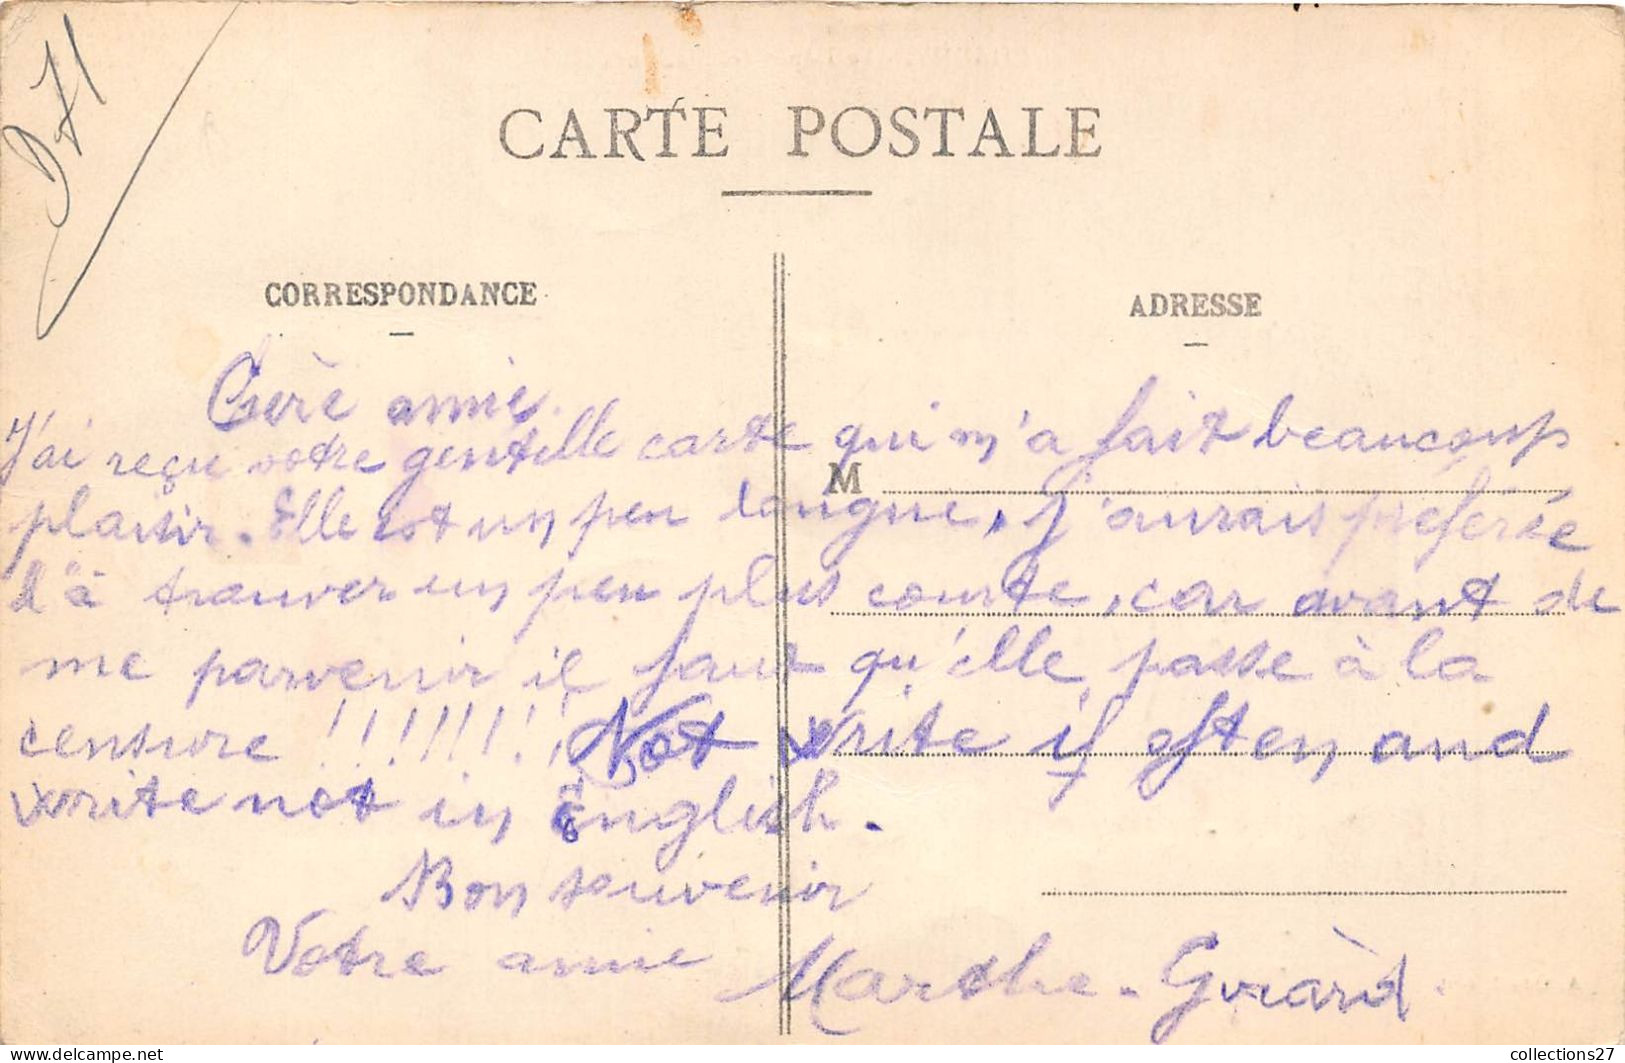 D71
CARTE POSTALE
CORRESPONDANCE
ADRESSE
Chère amie.
J'ai reçu votre gentille carte qui m'a fait beaucoup
M
plaisir. Elle est un peu longue, j'aurais préférée
l'à trouver un peu plus courte, car avant de
me parvenir il faut qu'elle passe à la
censure !!!!!!!! Not write if often and
write not in English.
Bon souvenir
Votre amie Marthe - Girard.
collections27